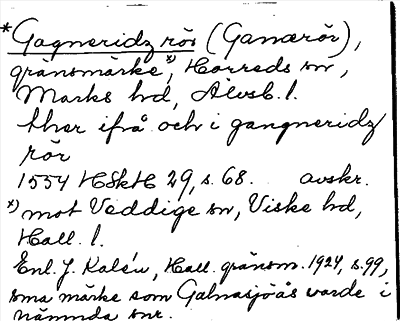 *Gagneridz rör (Ganærör),
gränsmärke x), Horreds sn,
Marks hd, Älvsb. l.
ther ifrå och i gangneridz
rör
1554 HSkH 29, s. 68. avskr.
x) mot Veddige sn, Viske hd,
Hall. l.
Enl. J. Kalén, Hall. gränsm. 1924, s. 99,
sma märke som Galmasjöås varde i
nämnda snr.